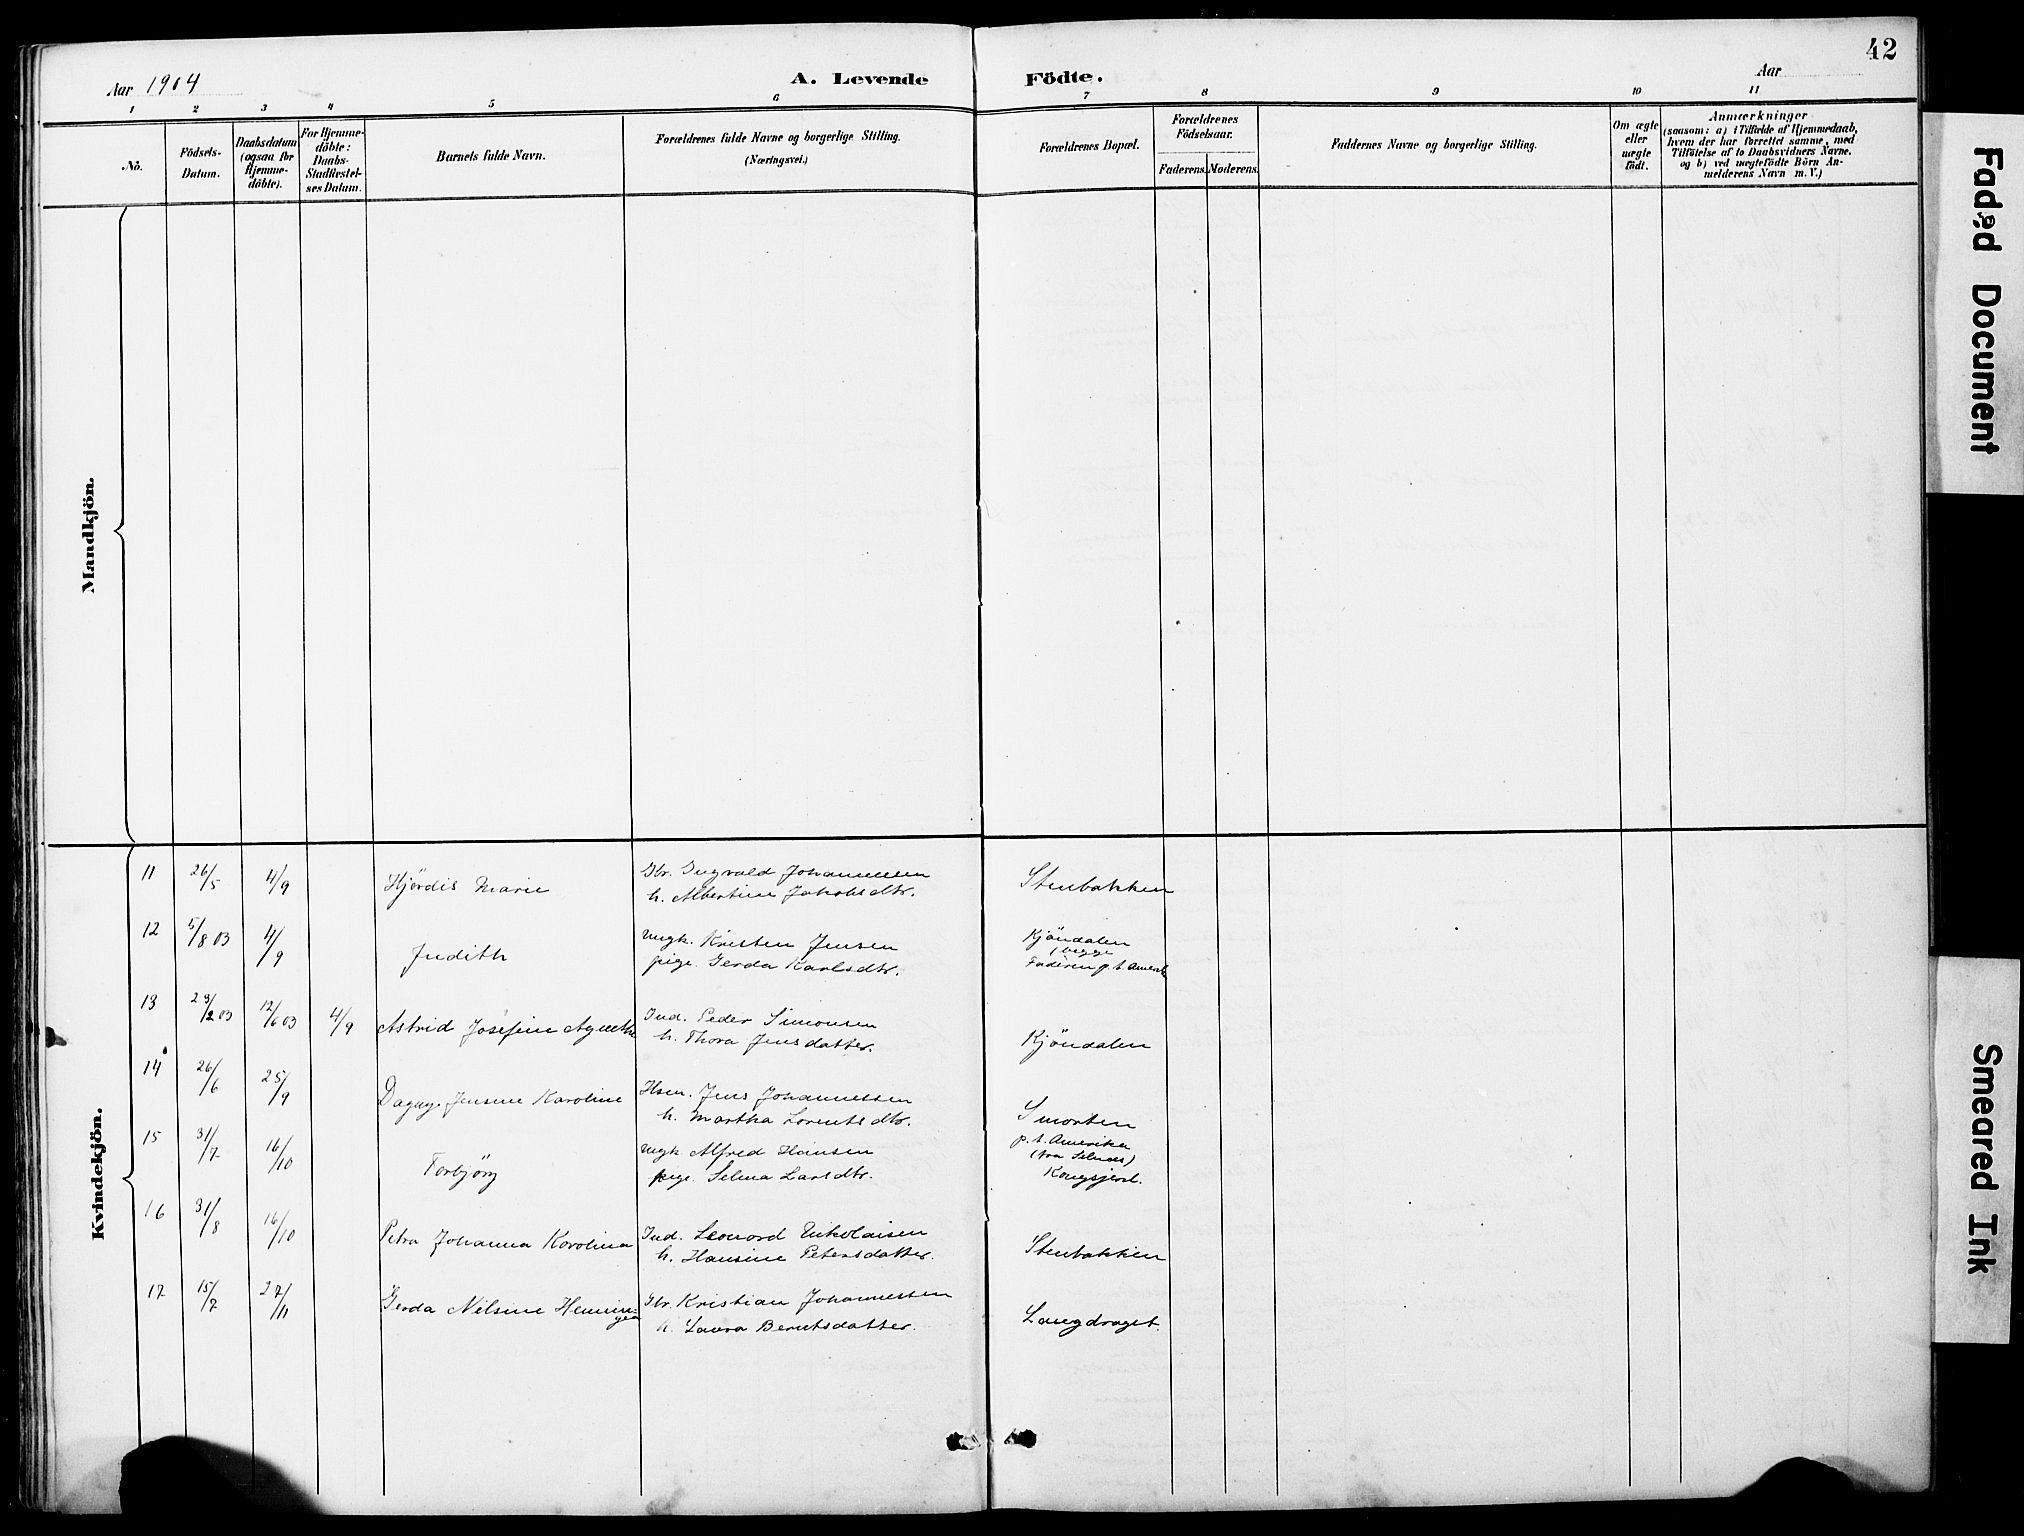 42
Aar 1904
A. Levende Födte.
Aar
1 2 3 4 5 6 7 8 9 10 11
No.
Födsels-
Datum.
Daabsdatum
(ogsaa for
Hjemme-
döbte).
For Hjemme-
döbte:
Daabs-
Stadfæstel-
ses Datum.
Barnets fulde Navn.
Forældrenes fulde Navne og borgerlige Stilling.
(Næringsvei.)
Forældrenes Bopæl.
Forældrenes
Födselsaar.
Faderens. Moderens.
Faddernes Navne og borgerlige Stilling.
Om ægte
eller
uægte
födt.
Anmærkninger
(saasom: a) i Tilfælde af Hjemmedaab,
hvem der har forrettet samme, med
Tilföielse af to Daabsvidners Navne.
og b) ved uægtefödte Börn An-
melderens Navn m. V.)
Mandkjön.
Kvindekjön.
11 26/5 4/9 Hjördis Marie
Gbr. Ingvald Johannessen
h. Albertine Jakobsdtr.
Stenbakken
12 5/8 03 4/9 Judith
Ungk. Kristen Jensen
pige Gerda Karlsdtr.
Kjöndalen
(begge
Faderen p.t. Amerik
13 23/2 03 12/6 03 4/9 Astrid Josefine Agnethe
Ind. Peder Simonsen
h. Thora Jensdatter.
Kjöndalen
14 26/6 25/9 Dagny Jensine Karoline
Hsm. Jens Johannessen
h. Martha Lorentsdtr.
Smorten
15 31/7 16/10 Torbjörg
Ungk Alfred Hansen
pige. Selma Larsdtr.
p.t. Amerika
(fra Selnes)
Kongsjord.
16 31/8 16/10 Petra Johanna Karolina
Ind. Leonord Nikolaisen
h. Hansine Petersdatter.
Stenbakken
17 15/7 27/11 Gerda Nilsine Hennin=
gea
Gbr. Kristian Johannessen
h. Laura Berntsdatter.
Langdraget.
Faded Document
Smeared Ink